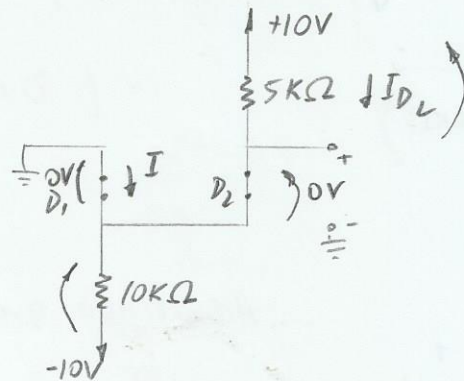 +10V
5KΩ ↓ I_D2
+
I
0V
D1
D2
0V
-
10KΩ
-10V